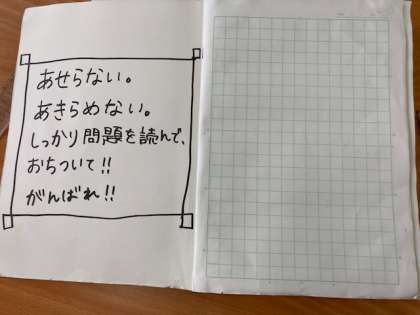 あせらない。
あきらめない。
しっかり問題を読んで、
おちついて!!
がんばれ!!